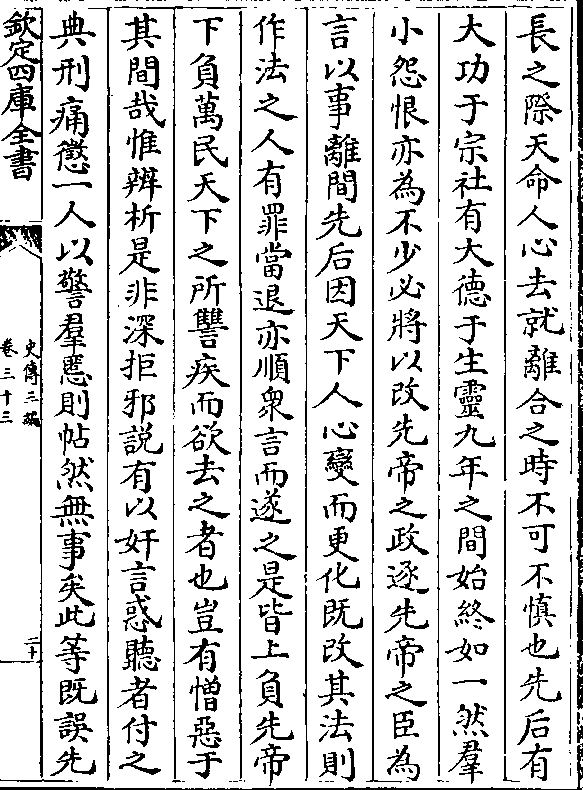 長之際天命人心去就離合之時不可不慎也先后有
大功于宗社有大德于生靈九年之間始終如一然羣
小怨恨亦為不少必將以改先帝之政逐先帝之臣為
言以事離間先后因天下人心變而更化既改其法則
作法之人有罪當退亦順衆言而遂之是皆上負先帝
下負萬民天下之所讐疾而欲去之者也豈有憎惡于
其間哉惟辨析是非深拒邪説有以奸言惑聽者付之
典刑痛懲一人以警羣慝則帖然無事矣此等既誤先
欽定四庫全書
史傳三編
卷三十三
二十